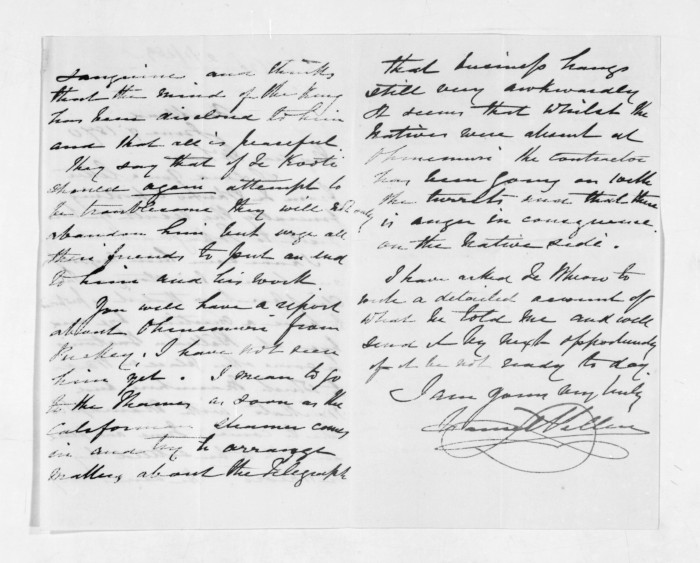 sanguine and thinks
that the mind of the King
has been disclosed to him
and that all is peaceful.
They say that if Te Kooti
should again attempt to
be troublesome they will not only
abandon him but urge all
their friends to put an end
to him and his work.
You will have a report
about Ohinemuri from
Puckey. I have not seen
him yet. I mean to go
to the Thames as soon as the
Californian steamer comes
in and try to arrange
matters about the Telegraph
that business hangs
still very awkwardly
It seems that whilst the
Natives were absent at
Ohinemuri the contractor
has been going on with
the and that there
is anger in consequence
on the Native side.
I have asked Te Wheoro to
write a detailed account of
what he told me and will
send it by next opportunity
if it be not ready to day.
I am yours very truly